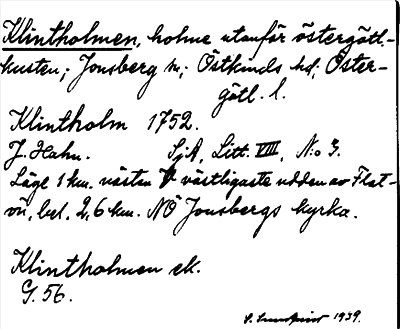 Klintholmen, holme utanför östergötl.-
kusten; Jonsberg sn; Östkinds hd; Öster-
götl. l.
Klintholm 1752.
J. Hahn. SjA, Litt. VIII, N:o 3.
Läge 1 km. nästen V västligaste udden av Flat-
ön, bel. 2,6 km. NÖ Jonsbergs kyrka.
Klintholmen ek.
G. 56.
1939.